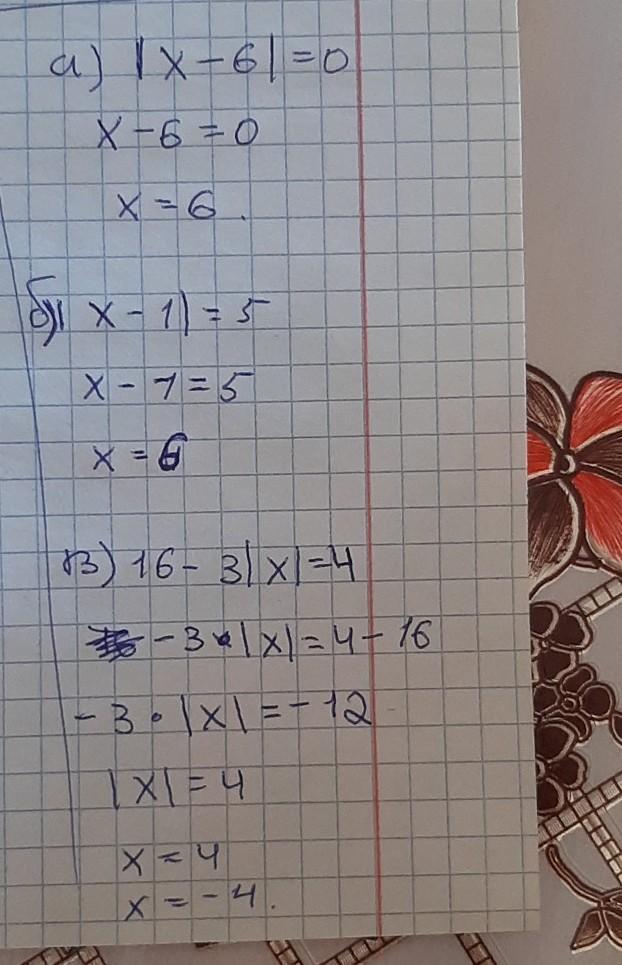 а) |x-6|=0
x-6=0
x=6.
б) |x-1|=5
x-1=5
x=6
в) 16-3|x|=4
-3·|x|=4-16
-3·|x|=-12
|x|=4
x=4
x=-4.